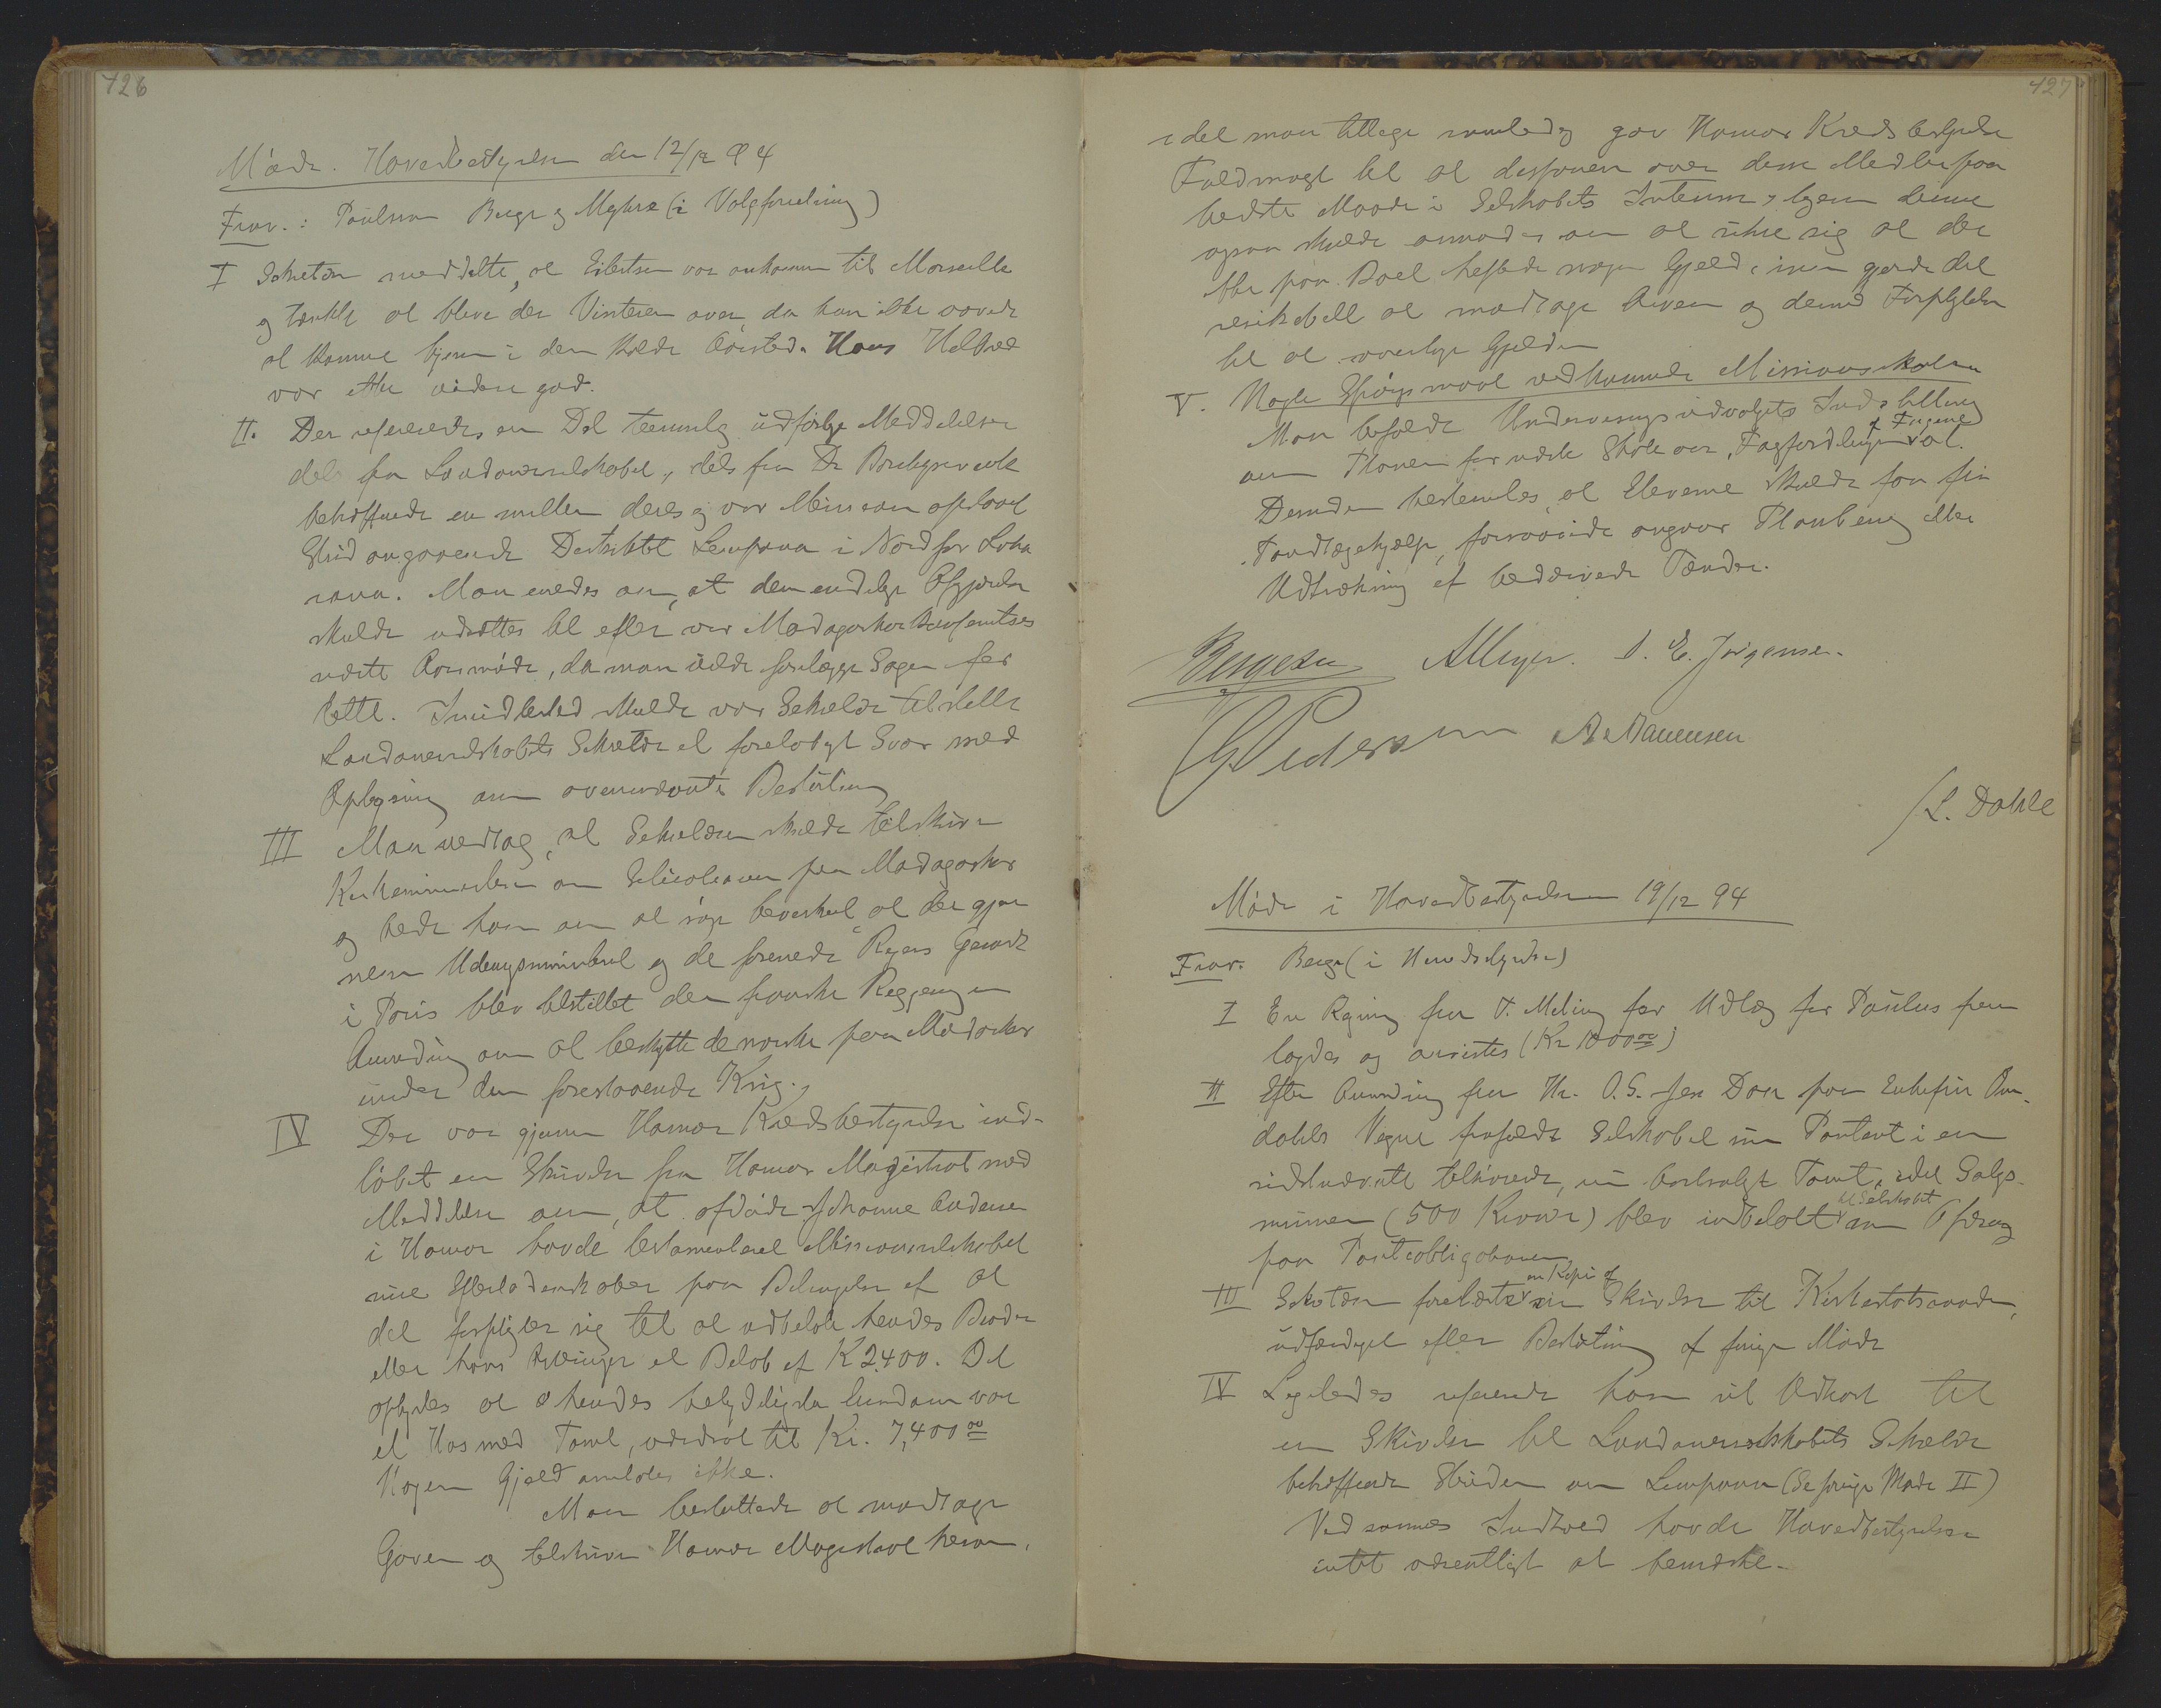 126
Møde. Hovedbestyrelsen den 12/12 94
Frav.: Paulsen Berge og Myhre (i Valgforretning)
I Sekretæren meddelte, at Eilertsen var ankommen til Marseille
og tænkte at blive der Vinteren over, da han ikke vovede
at komme hjem i den kolde Aarstid. Hans Helbred
var ikke videre god.
II. Der refereredes en Del temmelig udførlige Meddelelser
dels fra Londonerselskabet, dels fra Dr Borchgrevink
betræffende en mellem deres og vor Mission opstaaet
Strid angaaende Distriktet Lempona i Nord for Loha
rano. Man enedes om, at den endelige Afgjørelse
skulde udsættes til efter vor Madagaskarkonferentses
næste Aarsmøde, da man vilde forelægge Sagen for
dette. Imidlertid skulde vor Sekretær tilstille
Londonerselskabets Sekretær et foreløbigt Svar med
Oplysning om ovennævnte Beslutning
III Man vedtog, at Sekretæren skulde tilskrive
Kirkeministeren om Situationen paa Madagaskar
og bede ham om at søge bevirket, at der gjen
nem Udenrigsministeriet og de forenede Rigers Gesandt
i Paris blev tilstillet den franske Regjering en
Anmodning om at beskytte de norske paa Madagaskar
under den forestaaende Krig.
IV Der var gjennem Hamar Kredsbestyrelse ind-
løbet en Skrivelse fra Hamar Magistrat med
Meddelelse om, at afdøde Johanne Andersen
i Hamar havde testamenteret Missionsselskabet
sine Efterladenskaber paa Betingelse af at
det forpligter sig til at udbetale hendes Broder
eller hans Arvinger et Beløb af K 2400. Det
oplystes at hendes betydeligste Eiendom var
et Hus med Tomt, værdsat til Kr. 7,400 00
Nogen Gjæld anmeldtes ikke.
Man besluttede at modtage
Gaven og tilskrive Hamar Magistrat herom,
127
idet man tillige samtidig gav Hamar Kredsbestyrelse
Fuldmagt til at disponere over disse Midler paa
bedste Maade i Selskabets Interesse, ligesom denne
ogsaa skulde anmodes om at sikre sig at der
ikke paa Boet heftede nogen Gjæld, som gjorde det
risikabelt at modtage Arven og dermed Forpligtelsen
til at overtage Gjælden
V. Nogle Spørgsmaal vedkommende Missionsskolen
Man bifaldt Undervisningsudvalgets Indstilling
om Planen for næste Skoleaar, Fagfordelingen af Fagene o. l.
Desuden bestemtes, at Eleverne skulde faa fri
Tandlægehjælp, forsaavidt angaar Plombering eller
Udtrækning af bedærvede Tænder.
Bergesen AMeyer. S. E. Jørgensen.
GPedersen
L. Dahle
Møde i Hovedbestyrelsen 19/12 94
Frav. Berge (i Herredsstyrelse)
I En Regning fra T. Meling for Udlæg for Paulus frem
lagdes og anvistes (Kr 1000 00)
II Efter Anmodning fra Hr. O. S. fra Dass paa Enkefru Om-
dahls Vegne frafaldt Selskabet sin Panteret i en
sidstnævnte tilhørende, nu bortsolgt Tomt, idet Salgs-
summen (500 Kroner) blev indbetalt til Selskabet som Afdrag
paa Pantobligationen
III Sekretæren forelæste en Kopi af sin Skrivelse til Kirkestatsraaden,
udfærdiget efter Beslutning af forrige Møde
IV Ligeledes refererede han sit Udkast til
en Skrivelse til Londonerselskabets Sekretær
betræffende Striden om Lempona (Se forrige Møde II)
Ved sammes Indhold havde Hovedbestyrelsen
intet væsentligt at bemærke.